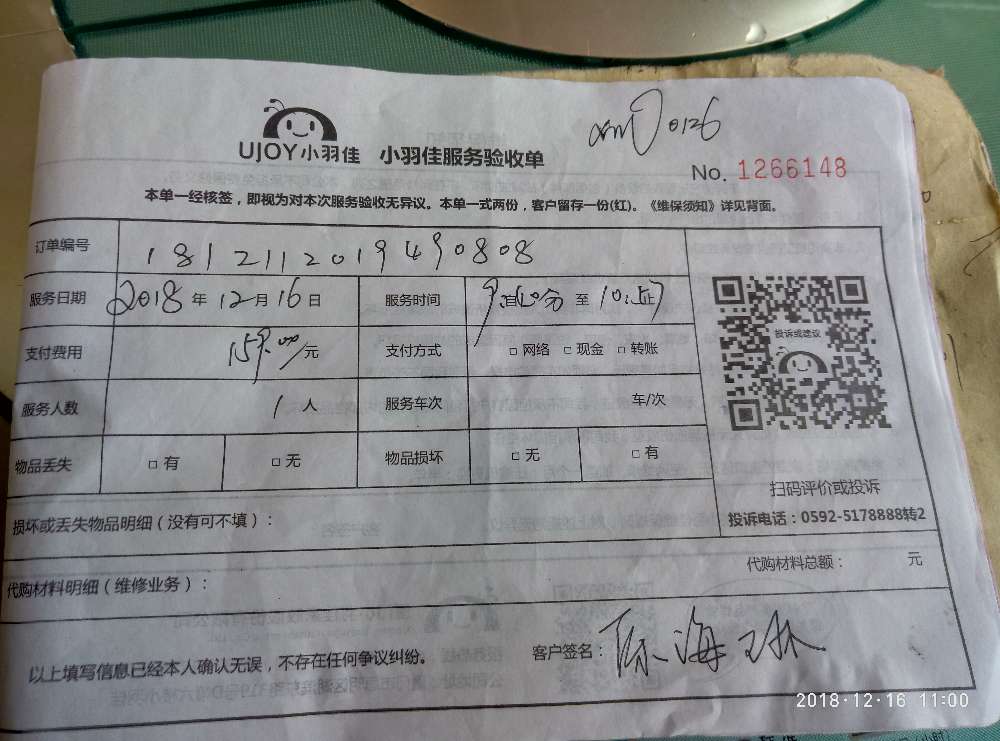 0126
UJOY小羽佳 小羽佳服务验收单
No. 1266148
本单一经核签，即视为对本次服务验收无异议。本单一式两份，客户留存一份(红)。《维保须知》详见背面。
订单编号 181211201949 0808
服务日期 2018 年 12 月 16 日 服务时间 至
投诉或建议
支付费用 159.00 元 支付方式 □ 网络 □ 现金 □ 转账
服务人数 1 人 服务车次 车/次
物品丢失 □ 有 □ 无 物品损坏 □ 无 □ 有
扫码评价或投诉
投诉电话：0592-5178888转2
损坏或丢失物品明细（没有可不填）：
代购材料明细（维修业务）： 代购材料总额： 元
以上填写信息已经本人确认无误，不存在任何争议纠纷。 客户签名：陈海琳
2018-12-16 11:00